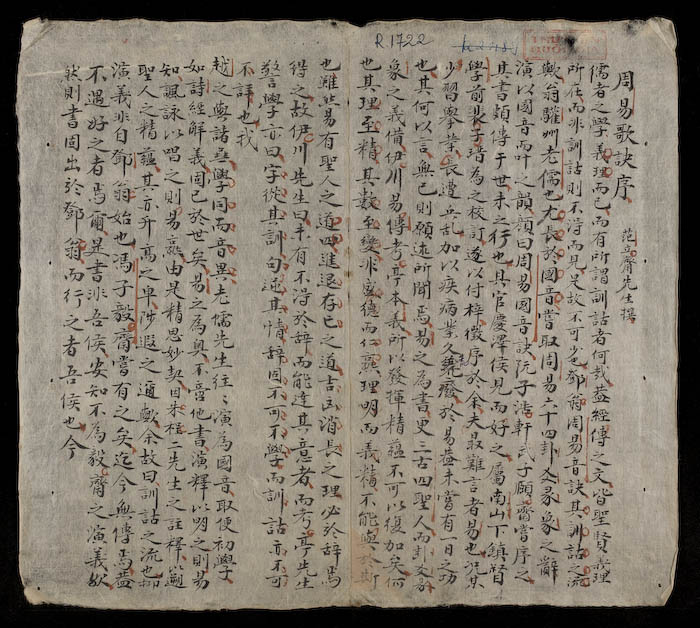 R.1722
周易歌訣序 范立齋先生撰
儒者之學義理而已而有所謂訓詁者何哉蓋經傳之文皆聖賢義理
所在而非訓詁則不得而見是故不可少也鄧翁周易音訣其訓詁之流
歟翁驩州老儒也尤長於國音嘗取周易六十四卦爻彖象之辭
演以國音而叶之韻顏曰周易國音訣阮子浩軒武子願齋嘗序之
其書頗傳于世未之行也具官慶澤侯見而好之屬南山下鎮督
學前裴子瑨為之校訂遂以付梓徵序於余夫最難言者易也況某
少習舉業長遭兵乱加以疾病業廢於易蓋未嘗有一日之功
也其何以言無已則願述所聞焉易之為書更三古四聖人而卦爻彖
象之義備伊川易傳考亭本義所以發揮精蘊不可以復加矣何
也其理至精其數至變非盛德而仁熟理明而義精不能與於斯
也雖然易有聖人之道四進退存亡之道吉凶消長之理必於辭焉
得之故伊川先生曰未有不得於辭而能達其意者而考亭先生
警學亦曰字從其訓句逆其情辭固不可不學而訓詁亦不可
不詳也我
越之與諸華學同而音異老儒先生往々演為國音取便初學
如詩經解義固已於世矣易之為奥不啻他書演釋以明之則易
知諷詠以唱之則易熟由是精思妙契因朱程二先生之註釋以遡
聖人之精蘊其亦升高之卑陟遐之邇歟余故曰訓詁之流也抑
演義非自鄧翁始也馮子毅齋嘗有之矣迄今無傳焉蓋
不遇好之者焉爾是書非吾侯安知不為毅齋之演義歟
然則書固出於鄧翁而行之者吾侯也今